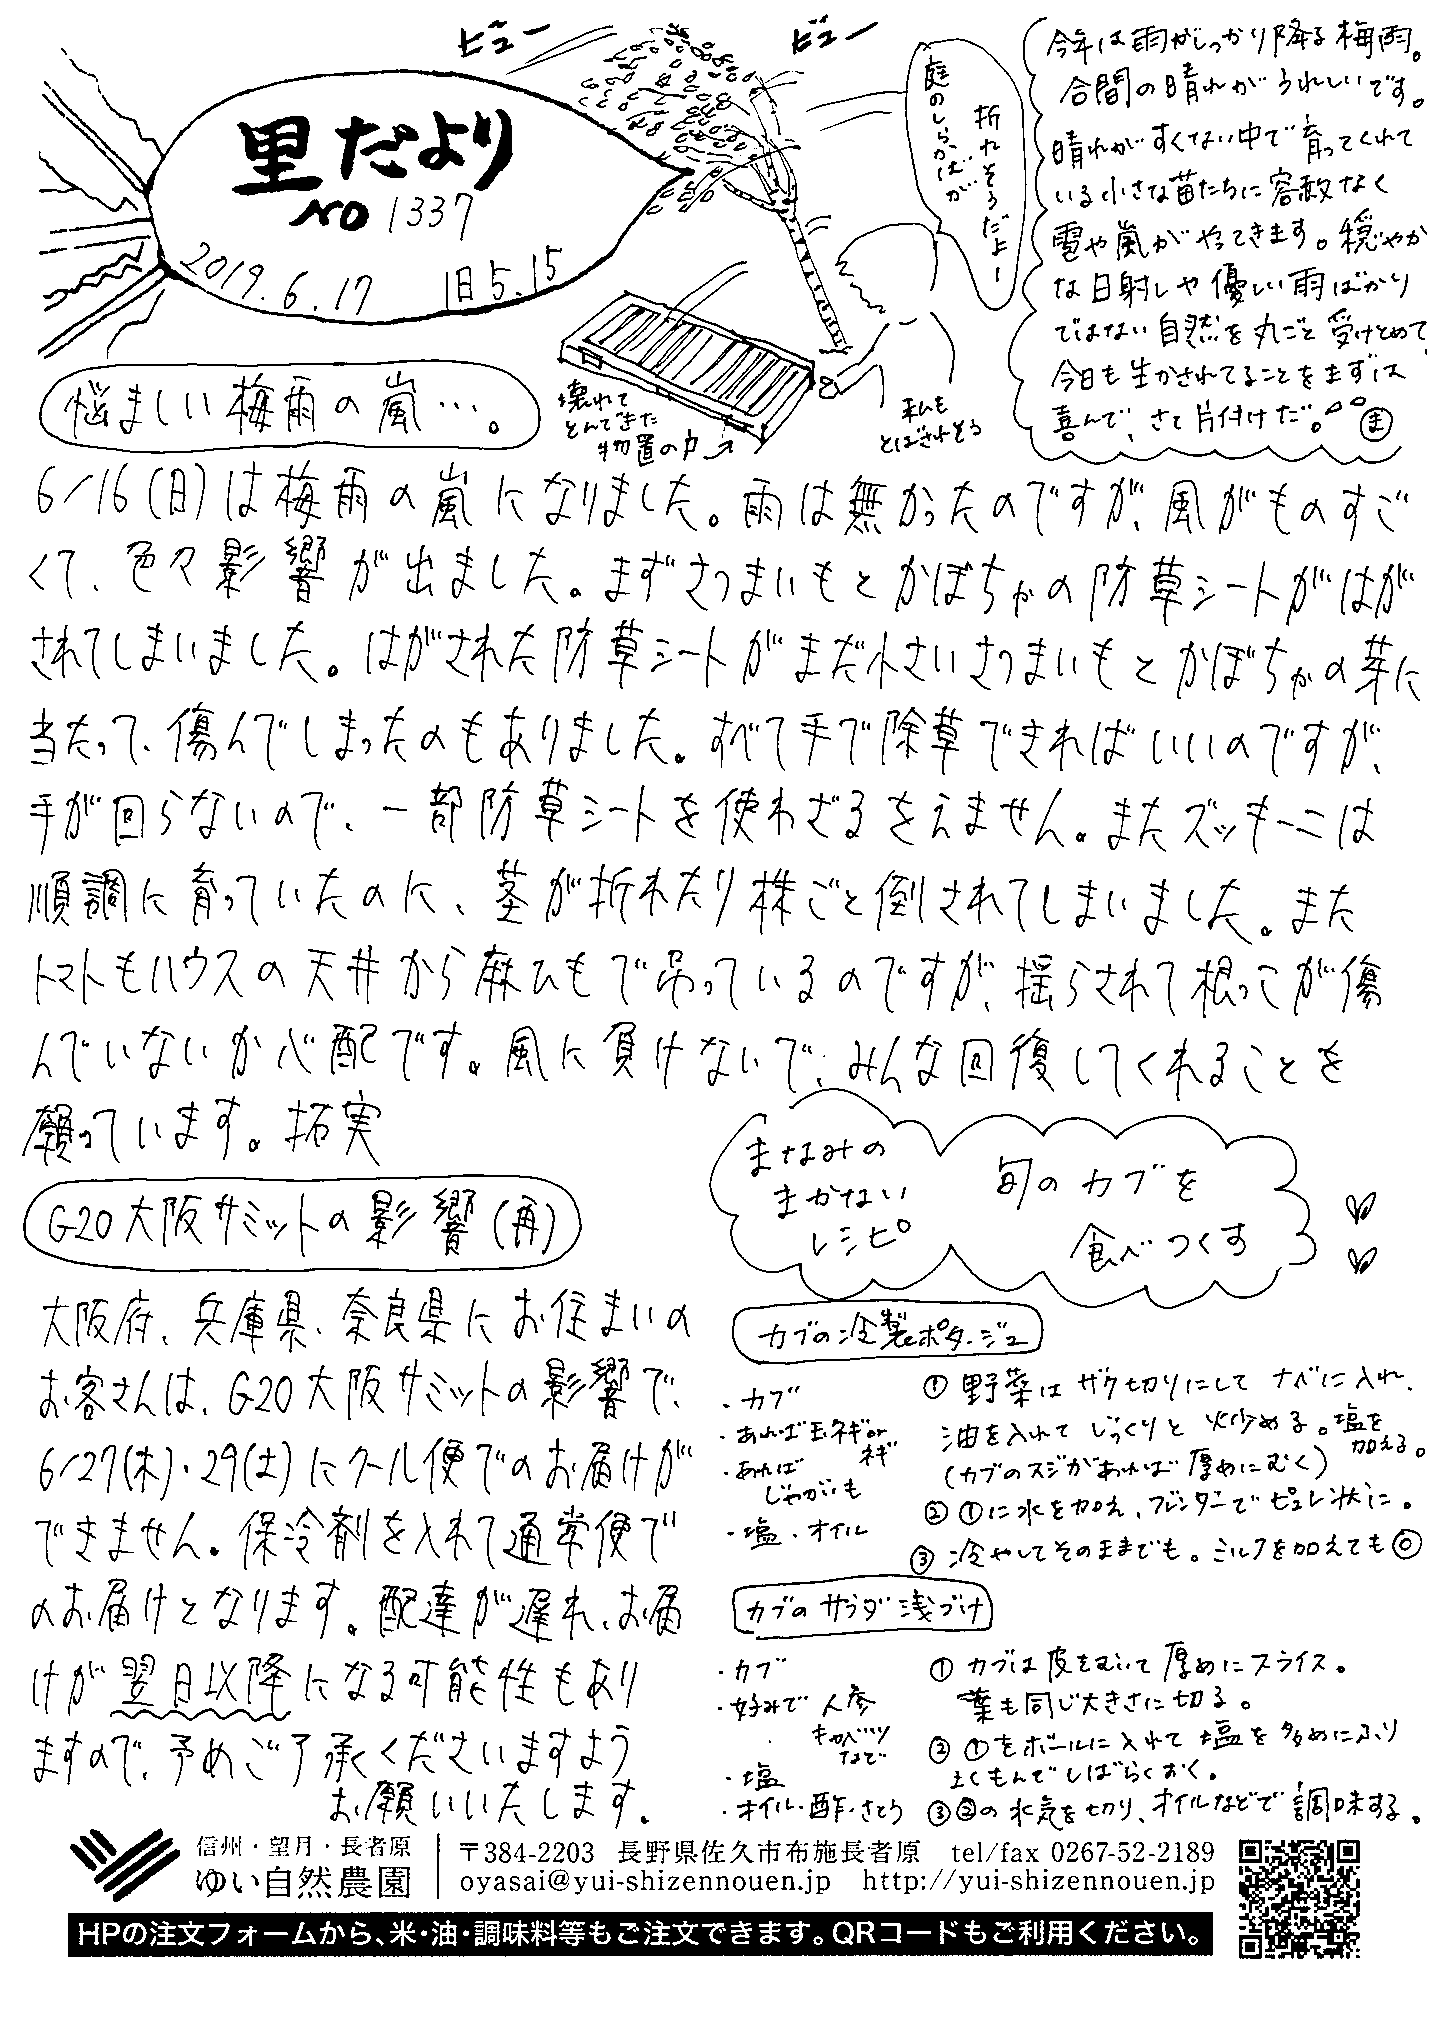 里だより
NO 1337
2019.6.17 旧5.15
ビュー
ビュー
庭のしらかばが
折れそうだよー
壊れて
とんできた
物置の戸
私も
とばされそう
今年は雨がしっかり降る梅雨。
合間の晴れがうれしいです。
晴れがすくない中で育ってくれて
いる小さな苗たちに容赦なく
雹や嵐がやってきます。穏やか
な日射しや優しい雨ばかり
ではない自然を丸ごと受けとめて
今日も生かされてることをまずは
喜んで、さて片付けだ。 ま
悩ましい梅雨の嵐…。
6/16(日)は梅雨の嵐になりました。雨は無かったのですが、風がものすご
くて、色々影響が出ました。まずさつまいもとかぼちゃの防草シートがはが
されてしまいました。はがされた防草シートがまだ小さいさつまいもとかぼちゃの芽に
当たって、傷んでしまったのもありました。すべて手で除草できればいいのですが、
手が回らないので、一部防草シートを使わざるをえません。またズッキーニは
順調に育っていたのに、茎が折れたり株ごと倒されてしまいました。また
トマトもハウスの天井から麻ひもで吊っているのですが、揺らされて根っこが傷
んでいないか心配です。風に負けないで、みんな回復してくれることを
願っています。拓実
G20大阪サミットの影響(再)
大阪府、兵庫県、奈良県にお住まいの
お客さんは、G20大阪サミットの影響で、
6/27(木)・29(土)にクール便でのお届けが
できません。保冷剤を入れて通常便で
のお届けとなります。配達が遅れ、お届
けが翌日以降になる可能性もあり
ますので、予めご了承くださいますよう
お願いいたします。
まなみの
まかない
レシピ
旬のカブを
食べつくす
カブの冷製ポタージュ
・カブ
・あれば玉ネギor
ネギ
・あれば
じゃがいも
・塩・オイル
① 野菜はザク切りにしてナベに入れ、
油を入れてじっくりと火炒める。塩を
加える。
(カブのスジがあれば厚めにむく)
② ①に水を加え、ブレンダーでピュレ状に。
③ 冷やしてそのままでも。ミルクを加えても◎
カブのサラダ浅づけ
・カブ
・好みで人参
キャベツ
など
・塩
・オイル・酢・さとう
① カブは皮をむいて厚めにスライス。
葉も同じ大きさに切る。
② ①をボールに入れて塩を多めにふり
よくもんでしばらくおく。
③ ②の水気を切り、オイルなどで調味する。
信州・望月・長者原
ゆい自然農園
〒384-2203 長野県佐久市布施長者原 tel/fax 0267-52-2189
oyasai@yui-shizennouen.jp http://yui-shizennouen.jp
HPの注文フォームから、米・油・調味料等もご注文できます。QRコードもご利用ください。